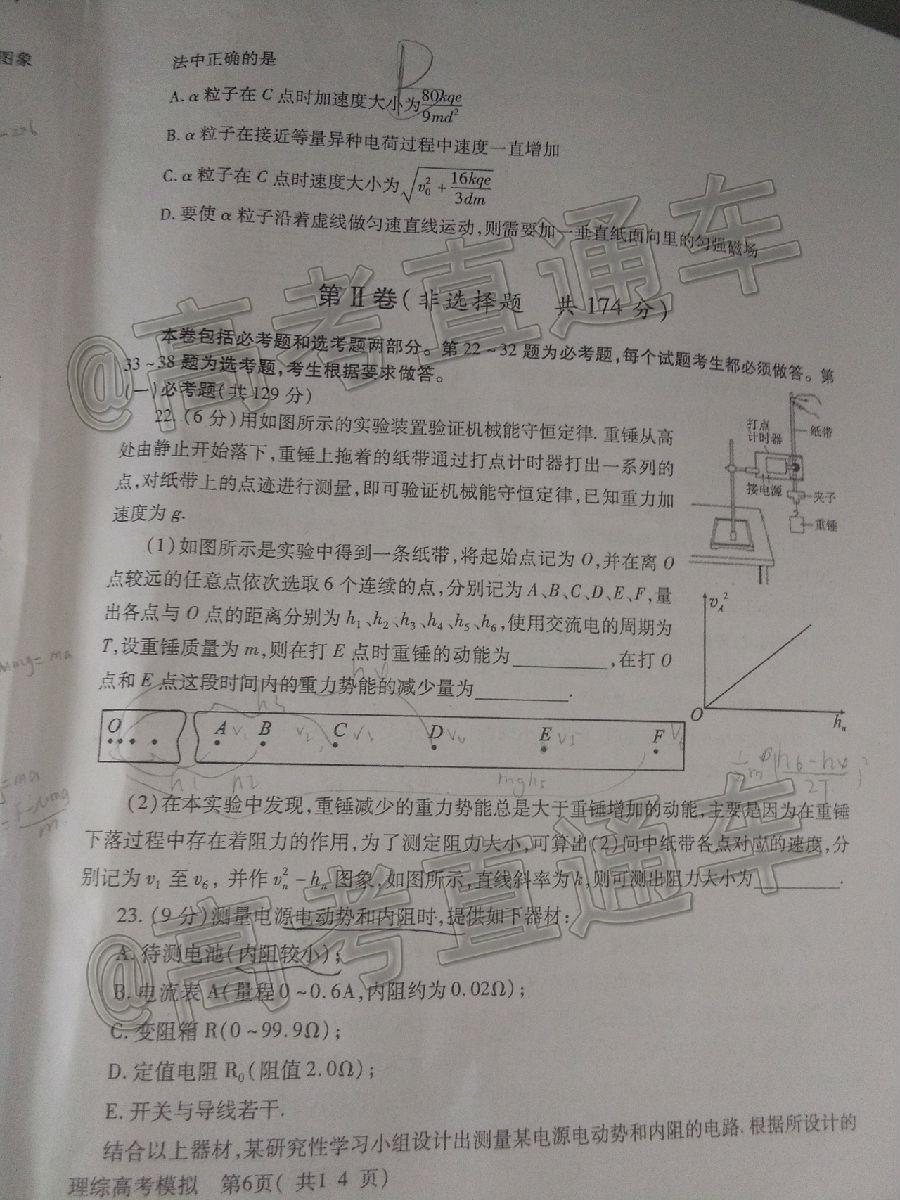 图象
法中正确的是
D
A. α 粒子在 C 点时加速度大小为 80kqe/9md²
B. α 粒子在接近等量异种电荷过程中速度一直增加
C. α 粒子在 C 点时速度大小为 √(v₀² + 16kqe/3dm)
D. 要使 α 粒子沿着虚线做匀速直线运动,则需要加一垂直纸面向里的匀强磁场
第Ⅱ卷(非选择题 共174分)
本卷包括必考题和选考题两部分。第22~32题为必考题,每个试题考生都必须做答。第
33~38题为选考题,考生根据要求做答。
(一)必考题(共129分)
22.(6分)用如图所示的实验装置验证机械能守恒定律.重锤从高
处由静止开始落下,重锤上拖着的纸带通过打点计时器打出一系列的
点,对纸带上的点迹进行测量,即可验证机械能守恒定律,已知重力加
速度为 g.
打点
计时器
纸带
接电源
夹子
重锤
(1)如图所示是实验中得到一条纸带,将起始点记为 O,并在离 O
点较远的任意点依次选取6个连续的点,分别记为 A、B、C、D、E、F,量
出各点与 O 点的距离分别为 h₁、h₂、h₃、h₄、h₅、h₆,使用交流电的周期为
T,设重锤质量为 m,则在打 E 点时重锤的动能为________,在打 O
点和 E 点这段时间内的重力势能的减少量为________.
vₙ²
O
hₙ
O A v₁ B v₂ C v₃ D v₄ E v₅ F
h₁ h₂ h₃ h₄ mgh₅
(2)在本实验中发现,重锤减少的重力势能总是大于重锤增加的动能,主要是因为在重锤
下落过程中存在着阻力的作用,为了测定阻力大小,可算出(2)问中纸带各点对应的速度,分
别记为 v₁ 至 v₆, 并作 vₙ² – hₙ 图象,如图所示,直线斜率为 k,则可测出阻力大小为________.
23.(9分)测量电源电动势和内阻时,提供如下器材:
A. 待测电池(内阻较小);
B. 电流表 A(量程0~0.6A,内阻约为0.02Ω);
C. 变阻箱 R(0~99.9Ω);
D. 定值电阻 R₀(阻值2.0Ω);
E. 开关与导线若干.
结合以上器材,某研究性学习小组设计出测量某电源电动势和内阻的电路.根据所设计的
理综高考模拟 第6页( 共1 4 页)
@高考直通车
@高考直通车